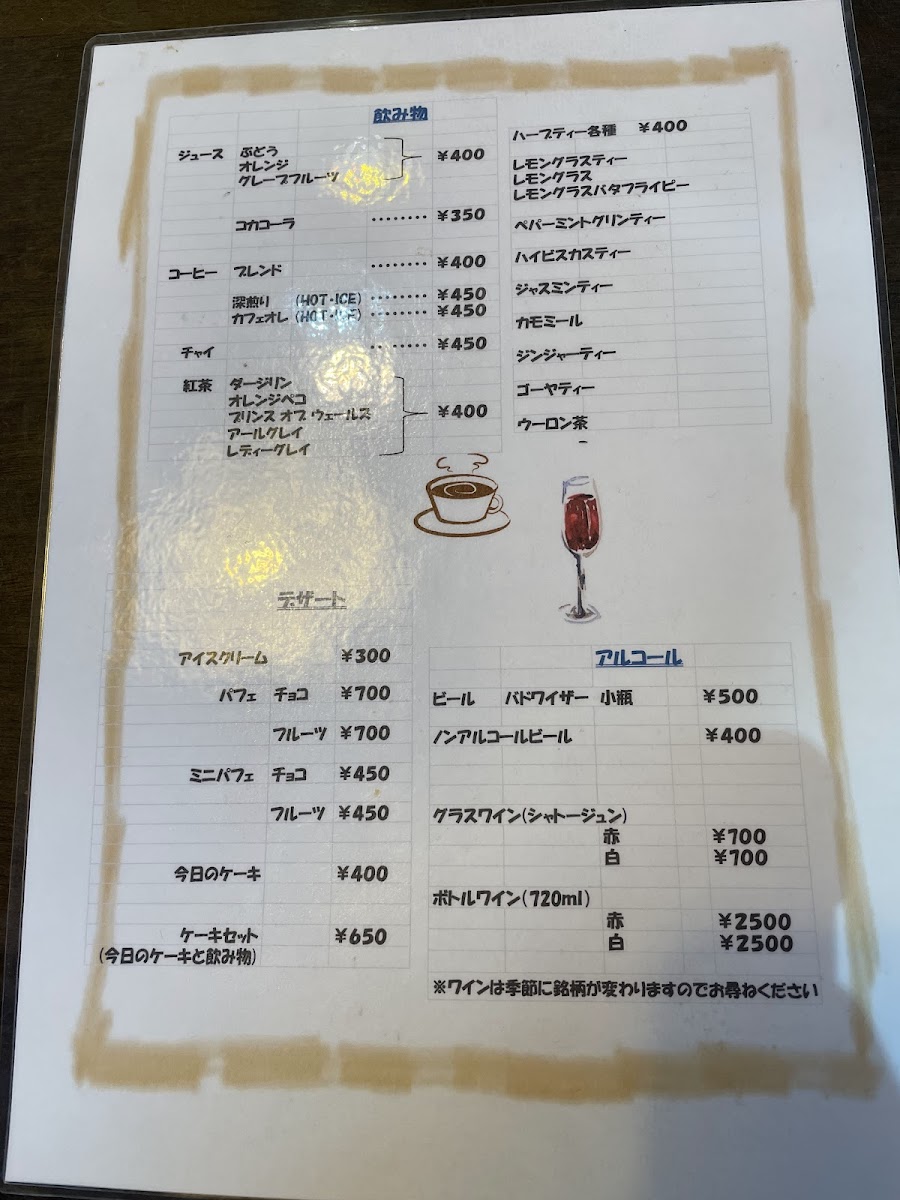 飲み物
ジュース ぶどう
オレンジ
グレープフルーツ
¥400
コカコーラ ........ ¥350
コーヒー ブレンド ........ ¥400
深煎り (HOT・ICE) ........ ¥450
カフェオレ (HOT・ICE) ........ ¥450
チャイ ........ ¥450
紅茶 ダージリン
オレンジペコ
プリンス オブ ウェールズ
アールグレイ
レディーグレイ
¥400
ハーブティー各種 ¥400
レモングラスティー
レモングラス
レモングラスバタフライピー
ペパーミントグリンティー
ハイビスカスティー
ジャスミンティー
カモミール
ジンジャーティー
ゴーヤティー
ウーロン茶
デザート
アイスクリーム ¥300
パフェ チョコ ¥700
フルーツ ¥700
ミニパフェ チョコ ¥450
フルーツ ¥450
今日のケーキ ¥400
ケーキセット ¥650
(今日のケーキと飲み物)
アルコール
ビール バドワイザー 小瓶 ¥500
ノンアルコールビール ¥400
グラスワイン(シャトージュン)
赤 ¥700
白 ¥700
ボトルワイン(720ml)
赤 ¥2500
白 ¥2500
※ワインは季節に銘柄が変わりますのでお尋ねください